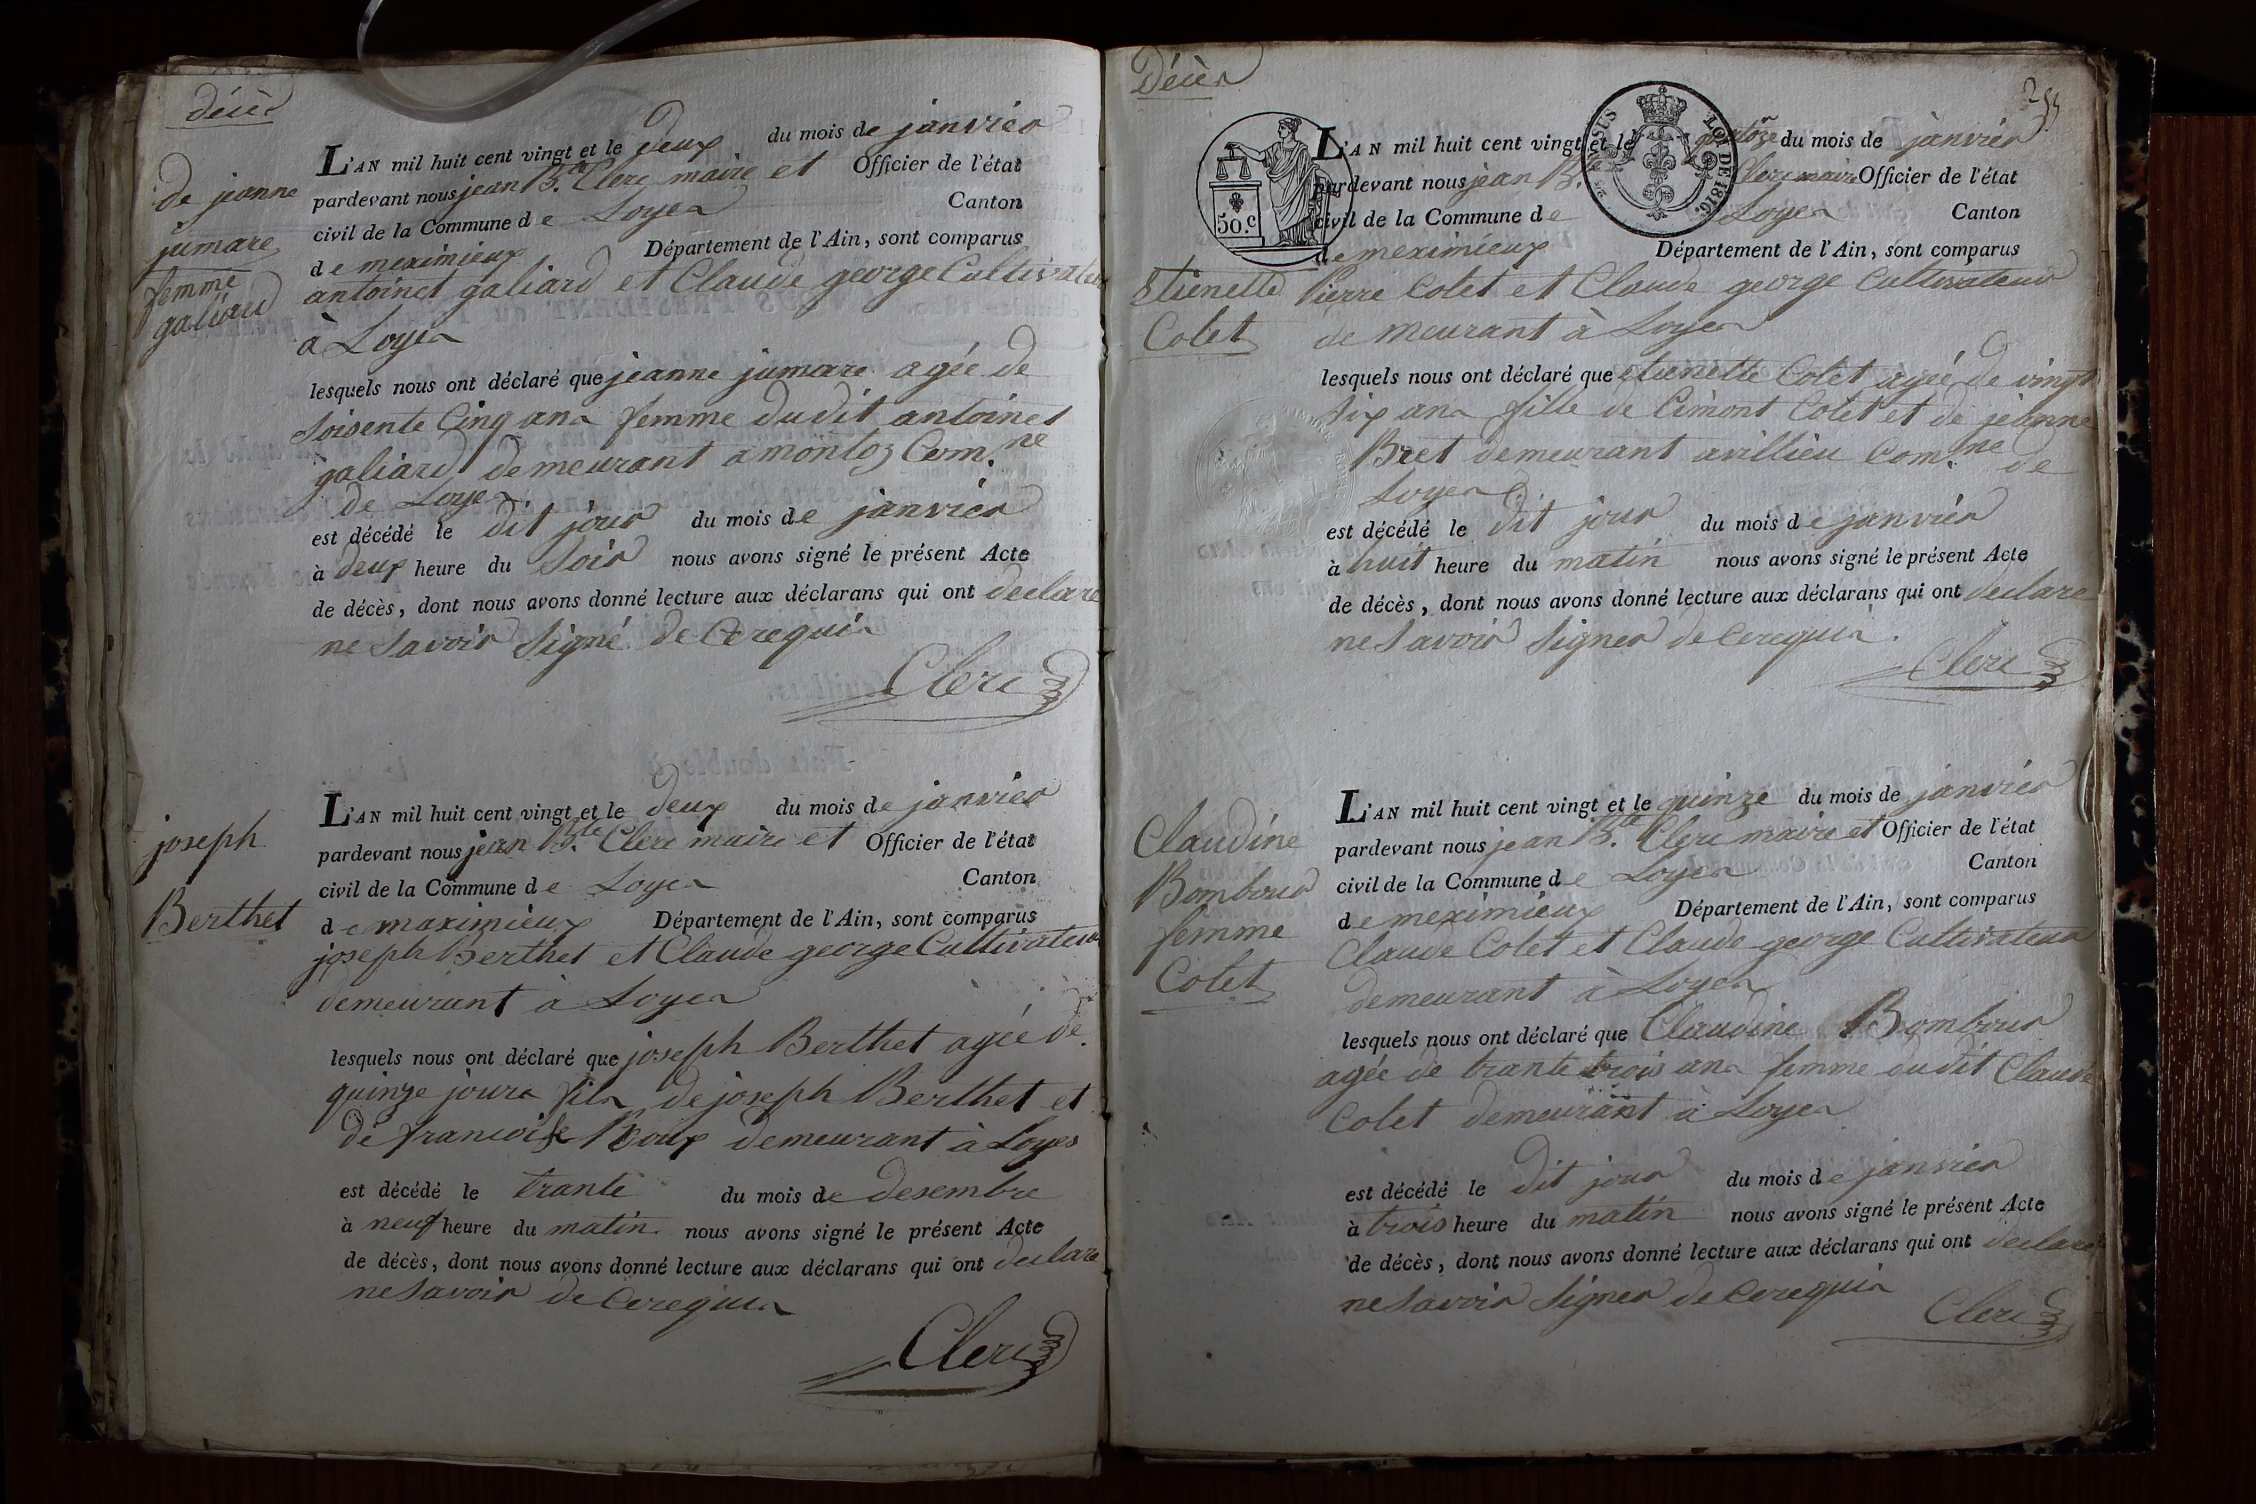 décès
de jeanne
jumare
femme
galiard
L'AN mil huit cent vingt et le deux du mois de janvier
pardevant nous jean B.te Clerc maire et Officier de l'état
civil de la Commune de Loyes Canton
de meximieux Département de l'Ain, sont comparus
antoinet galiard et Claude george Cultivateur
à Loyes
lesquels nous ont déclaré que jeanne jumare agée de
soisente Cinq ans femme dudit antoinet
galiard demeurant a montoz Com.ne
de Loyes
est décédé le dit jour du mois de janvier
à deux heure du soir nous avons signé le présent Acte
de décès, dont nous avons donné lecture aux déclarans qui ont declare
ne savoir signé de Cerequis
Clerc
joseph
Berthet
L'AN mil huit cent vingt et le deux du mois de janvier
pardevant nous jean B.te Clerc maire et Officier de l'état
civil de la Commune de Loyes Canton
de maximieux Département de l'Ain, sont comparus
joseph Berthet et Claude george Cultivateur
demeurant à Loyes
lesquels nous ont déclaré que joseph Berthet agée de
quinze jours fils de joseph Berthet et
de francoise Roux demeurant à Loyes
est décédé le trante du mois de desembre
à neuf heure du matin nous avons signé le présent Acte
de décès, dont nous avons donné lecture aux déclarans qui ont declare
ne savoir de Cerequis
Clerc
Décès
255
50.c
LOI DE 1816.
Etienette
Colet
L'AN mil huit cent vingt et le quatoze du mois de janvier
pardevant nous jean B. Clerc maire Officier de l'état
civil de la Commune de Loyes Canton
de meximieux Département de l'Ain, sont comparus
Pierre Colet et Claude george Cultivateur
de meurant à Loyes
lesquels nous ont déclaré que etienette Colet agée de vingt
six ans fille de Cimont Colet et de jeanne
Bret demeurant a villieu Com.ne de
Loyes
est décédé le dit jour du mois de janvier
à huit heure du matin nous avons signé le présent Acte
de décès, dont nous avons donné lecture aux déclarans qui ont declare
ne savoir signer de Cerequis.
Clerc
Claudine
Bombour
femme
Colet
L'AN mil huit cent vingt et le quinze du mois de janvier
pardevant nous jean B.te Clerc maire et Officier de l'état
civil de la Commune de Loyes Canton
de meximieux Département de l'Ain, sont comparus
Claude Colet et Claude george Cultivateur
demeurant à Loyes
lesquels nous ont déclaré que Claudine Bombour
agée de trante trois ans femme dudit Claude
Colet demeurant à Loyes
est décédé le dit jour du mois de janvier
à trois heure du matin nous avons signé le présent Acte
de décès, dont nous avons donné lecture aux déclarans qui ont declare
ne savoir signer de Cerequis
Clerc